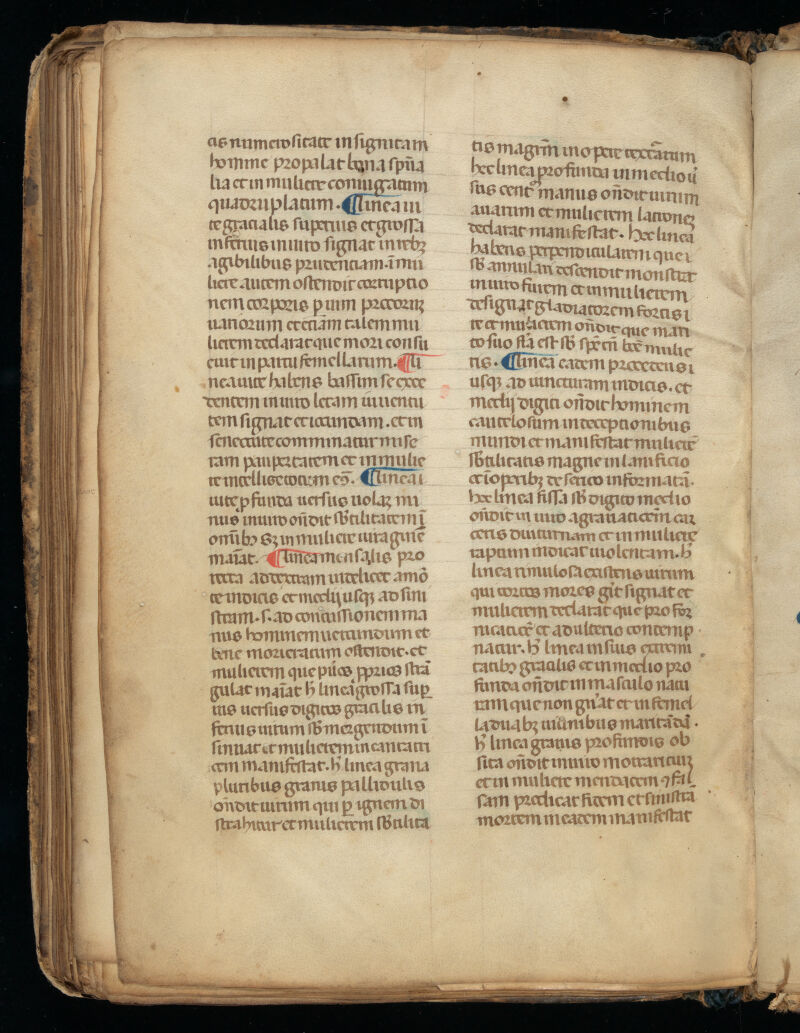 as numerositate in signitam
homine propalat bona spũa
lia et in muliere coniugatum
quadruplatum. ¶ Linea ui
te gracialis superius et grossa
inferius in uiro signat in rebȝ
agibilibus prudenciam. ĩ mu
liere autem ostendit corruptio
nem corporis p uim precorȝ
uanorum et etiam talem mu
lierem declarat que mori consu
euit in partu femellarum. ¶ Li
nea uite habens bassim se exce
dentem in uiro letam iuuentu
tem signat et iocundam. et in
senectute comminatur mise
ram paupertatem et in mulie
re intellige totum eꝯ. ¶ Linea i
uite profunda uersus uolaȝ ma
nus in uiro oñdit sb̃tilitatem ĩ
om̃ibȝ sȝ in muliere iura gine
mãat. ¶ Linea mensalis pro
tecta ad tectam uidelicet amõ
te indicis et medij usqȝ ad sini
stram. s. ad concussionem ma
nus hominem uerecundum et
bene morieratum ostendit. et
mulierem que pũos pprios strã
gulat mãat h̃ linea grossa sup
ius uersus digitos gracilis in
ferius uirum sb̃mergendum ĩ
sinuat et mulierem incantatri
cem manifestat. h̃ linea grana
pluribus granis pallidulis
oñdit uirum qui p ignem di
strahitur et mulierem sb̃tilita
tis magem̃ in opere textarum
hec linea profunda in medio ũ
sus cent̃ manus oñdit uirum
auarum et mulierem latrones
declarat manifestat. hec linea
habens perpendicularem que i
sb̃ annulari descendit monstrat
in uiro furem et in mulierem
designat gladiatorem fortis i
re et mulierem oñdit que mari
to suo sta est sb̃ spẽ cũ bee mulie
ris. ¶ Linea eadem precedens i
usqȝ ad iuncturam indicis. et
medij digiti oñdit hominem
cautelosum in deceptionibus
mundi et manifestat muliere
sb̃tilitatis magne in lanificio
et ĩ operibȝ de serico informatã.
hec linea fissa sb̃ digito medio
oñdit in uiro agrauacionem car
ceris diuturnam et in muliere
raptum indicat uiolentam. h̃
linea rimulosa existens uirum
qui toruos mores git signat et
mulierem declarat que pro for
nicacione et adulterio contemp
natur. h̃ linea in suis extremi
tatibȝ gracilis et in medio pro
funda oñdit in masculo natu
ram que non gñat et in femel
la duabȝ uiũnibus maritãda.
h̃ linea granis profundis ob
sita oñdit in uiro mortariuȝ
et in muliere mendacem ⁊ fal
sam predicat fidem et sinistra
mortem in eadem manifestat